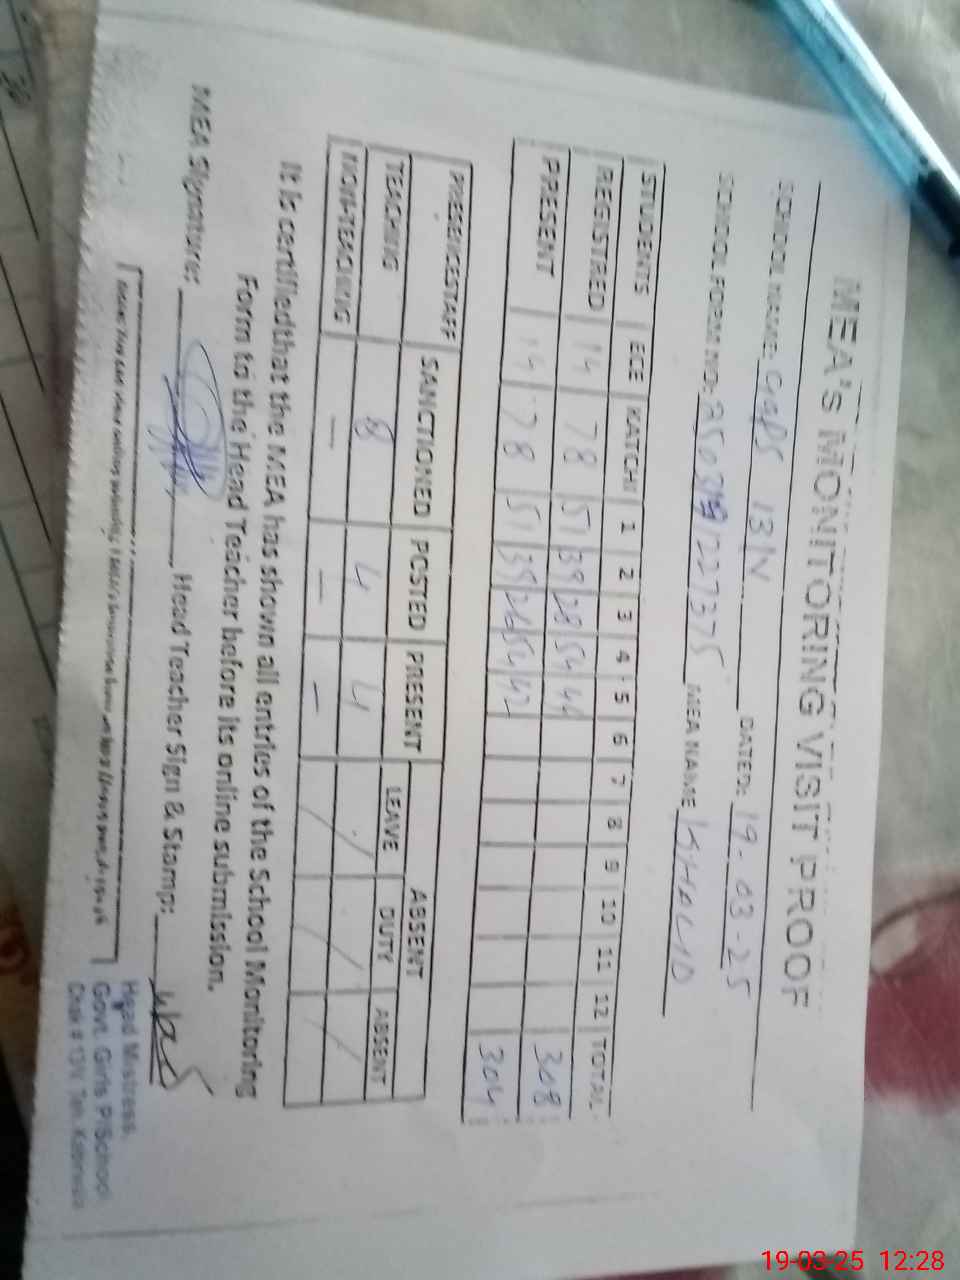 MEA's MONITORING VISIT PROOF
SCHOOL NAME: GGPS 13/V DATED: 19-03-25
SCHOOL FORM NO: MEA NAME KHALID
STUDENTS ECE KATCHI 1 2 3 4 5 6 7 8 9 10 11 12 TOTAL
REGISTRED 14 78 51 39 28 54 44 308
PRESENT 14 78 51 39 26 54 42 304
PRESENCE STAFF SANCTIONED POSTED PRESENT ABSENT
LEAVE DUTY ABSENT
TEACHING 8 4 4 / / /
NON-TEACHING - - -
It is certified that the MEA has shown all entries of the School Monitoring
Form to the Head Teacher before its online submission.
MEA Signature: Head Teacher Sign & Stamp:
Head Mistress
Govt. Girls P/School
Chak # 13/V Teh.
19-03-25 12:28